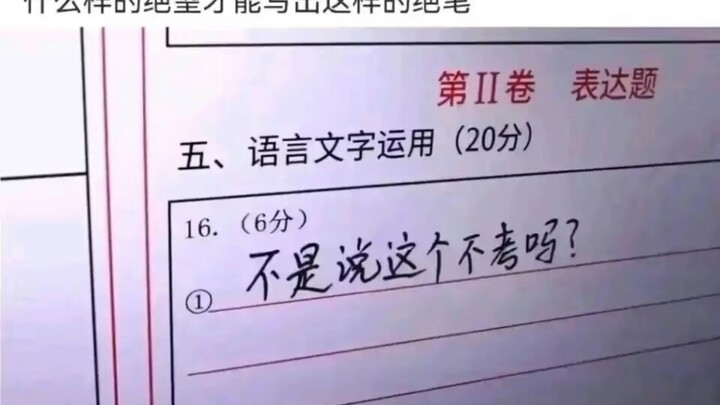 什么样的绝望才能写出这样的绝笔
第II卷 表达题
五、语言文字运用（20分）
16.（6分）
① 不是说这个不考吗？